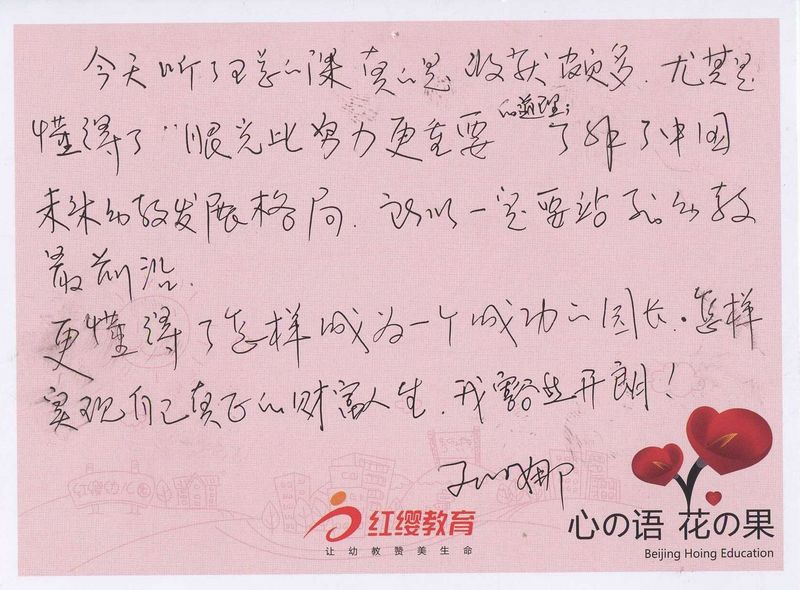 今天听了王总的课真的是收获颇多.尤其是
懂得了"眼光比努力更重要
的道理;
了解了中国
未来幼教发展格局.所以一定要站到幼教
最前沿.
更懂得了怎样成为一个成功的园长.怎样
实现自己真正的财富人生.我豁然开朗!
红缨幼儿园
红缨教育
让幼教赞美生命
心の语 花の果
Beijing Hoing Education